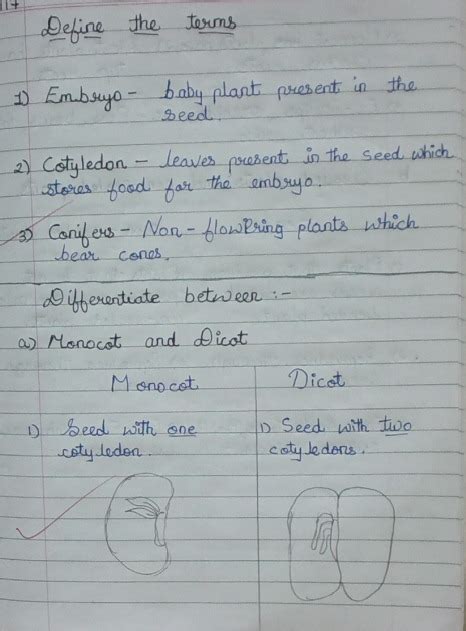 117
Define the terms
1) Embryo - baby plant present in the
seed.
2) Cotyledon - leaves present in the seed which
stores food for the embryo.
3) Conifers - Non-flowering plants which
bear cones.
Differentiate between :-
a) Monocot and Dicot
Monocot
Dicot
1) Seed with one
cotyledon.
1) Seed with two
cotyledons.